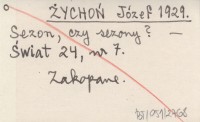 ŻYCHOŃ Józef 1929.
Sezon, czy sezony? —
Świat 24, nr 7.
Zakopane.